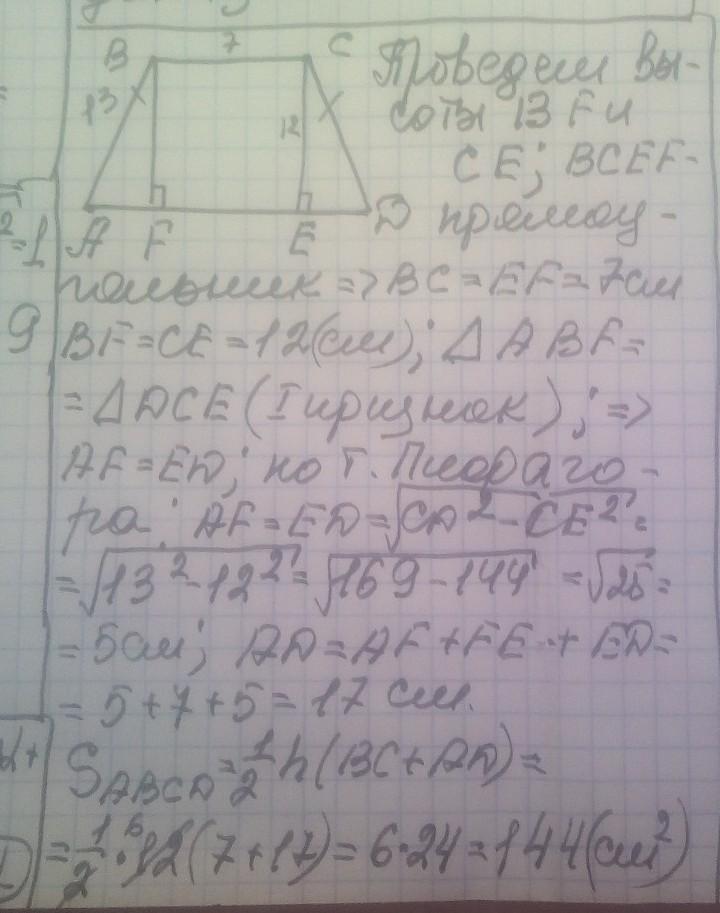 B 7 C
Проведем вы-
13
соты BF и
12
CE; BCEF-
A F E D
прямоу-
гольник => BC = EF = 7см
BF = CE = 12(см); △ABF =
= △DCE (I признак); =>
AF = ED; по т. Пифаго-
ра: AF = ED = √CD² - CE² =
= √13² - 12² = √169 - 144 = √25 =
= 5см; AD = AF + FE + ED =
= 5 + 7 + 5 = 17 см.
S ABCD = 1/2 h (BC + AD) =
= 1/2 · 12 6 (7 + 17) = 6·24 = 144 (см²)
=1
9